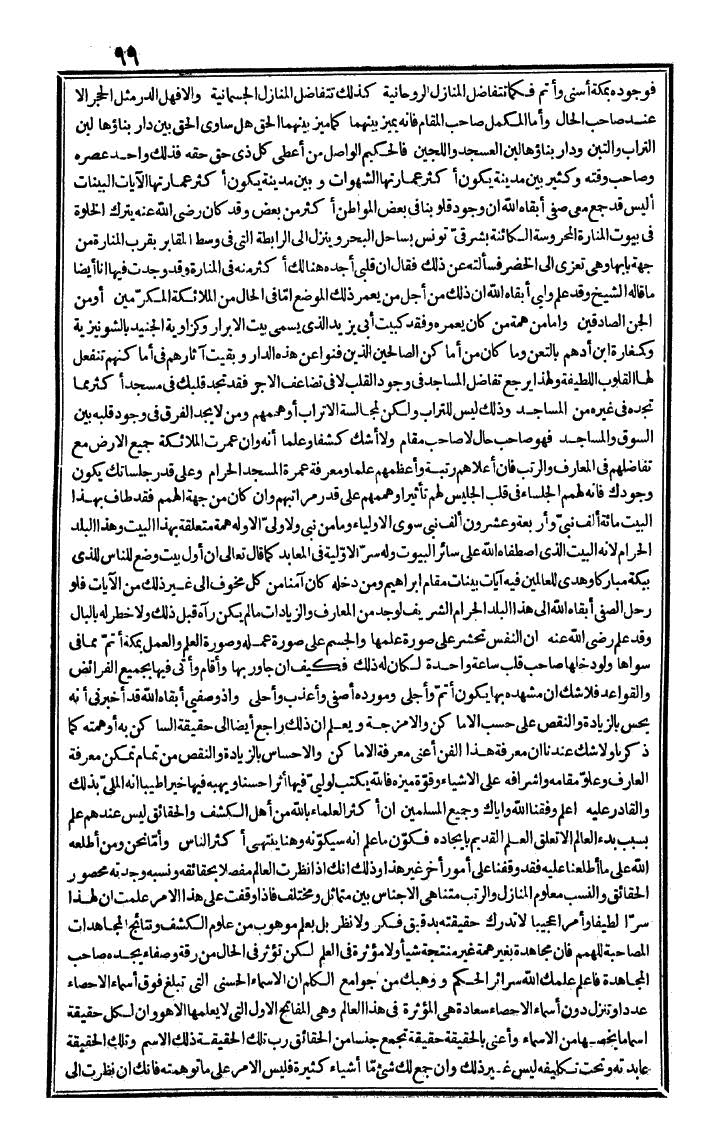 ٩٩
فوجوده بمكة أسنى وأتم فكما تتفاضل المنازل الروحانية كذلك تتفاضل المنازل الجسمانية والا فهل الدر مثل الحجر الا
عند صاحب الحال وأما المكمل صاحب المقام فانه يميز بينهما كما ميز بينهما الحق هل ساوى الحق بين دار بناؤها لبن
التراب والتبن ودار بناؤها لبن العسجد واللجين فالحكيم الواصل من أعطى كل ذى حق حقه فذلك واحد عصره
وصاحب وقته وكثير بين مدينة يكون أكثر عمارتها الشهوات وبين مدينة يكون أكثر عمارتها الآيات البينات
أليس قد جمع معى صفى أبقاه الله ان وجود قلوبنا فى بعض المواطن أكثر من بعض وقد كان رضى الله عنه يترك الخلوة
فى بيوت المنارة المحروسة الكائنة بشرقىّ تونس بساحل البحر وينزل الى الرابطة التى فى وسط المقابر بقرب المنارة من
جهة بابها وهى تعزى الى الخضر فسألته عن ذلك فقال ان قلبى أجده هنالك أكثر منه فى المنارة وقد وجدت فيها انا أيضا
ما قاله الشيخ وقد علم وليى أبقاه الله ان ذلك من أجل من يعمر ذلك الموضع امّا فى الحال من الملائكة المكرّمين أو من
الجن الصادقين واما من همة من كان يعمره وفقد كبيت أبى يزيد الذى يسمى بيت الابرار وكزاوية الجنيد بالشونيزية
وكمغارة ابن أدهم بالتعن وما كان من أماكن الصالحين الذين فنوا عن هذه الدار وبقيت آثارهم فى أماكنهم تنفعل
لها القلوب اللطيفة ولهذا يرجع تفاضل المساجد فى وجود القلب لا فى تضاعف الاجر فقد تجد قلبك فى مسجد أكثر مما
تجده فى غيره من المساجد وذلك ليس للتراب ولكن لمجالسة الاتراب أو هممهم ومن لا يجد الفرق فى وجود قلبه بين
السوق والمساجد فهو صاحب حال لا صاحب مقام ولا أشك كشفا وعلما أنه وان عمرت الملائكة جميع الارض مع
تفاضلهم فى المعارف والرتب فان أعلاهم رتبة وأعظمهم علما ومعرفة عمرة المسجد الحرام وعلى قدر جلسائك يكون
وجودك فانه لهمم الجلساء فى قلب الجليس لهم تأثيرا وهممهم على قدر مراتبهم وان كان من جهة الهمم فقد طاف بهذا
البيت مائة ألف نبىّ وأربعة وعشرون ألف نبى سوى الاولياء وما من نبى ولا ولىّ الا وله همة متعلقة بهذا البيت وهذا البلد
الحرام لانه البيت الذى اصطفاه الله على سائر البيوت وله سرّ الاوّلية فى المعابد كما قال تعالى ان أول بيت وضع للناس للذى
ببكة مباركا وهدى للعالمين فيه آيات بينات مقام ابراهيم ومن دخله كان آمنا من كل مخوف الى غير ذلك من الآيات فلو
رحل الصفى أبقاه الله الى هذا البلد الحرام الشريف لوجد من المعارف والزيادات ما لم يكن رآه قبل ذلك ولا خطر له بالبال
وقد علم رضى الله عنه ان النفس تحشر على صورة علمها والجسم على صورة عمله وصورة العلم والعمل بمكة أتمّ مما فى
سواها ولو دخلها صاحب قلب ساعة واحدة لكان له ذلك فكيف ان جاور بها وأقام وأتى فيها بجميع الفرائض
والقواعد فلا شك ان مشهده بها يكون أتمّ وأجلى ومورده أصفى وأعذب وأحلى واذ وصفيى أبقاه الله قد أخبرنى أنه
يحس بالزيادة والنقص على حسب الاماكن والامزجة ويعلم ان ذلك راجع أيضا الى حقيقة الساكن به أو همته كما
ذكرنا ولا شك عندنا ان معرفة هذا الفن أعنى معرفة الاماكن والاحساس بالزيادة والنقص من تمام تمكن معرفة
العارف وعلوّ مقامه واشرافه على الاشياء وقوّة ميزه فالله يكتب لوليىّ فيها أثرا حسنا ويهبه فيها خيرا طيبا انه الملىّ بذلك
والقادر عليه اعلم وفقنا الله واياك وجميع المسلمين ان أكثر العلماء بالله من أهل الكشف والحقائق ليس عندهم علم
بسبب بدء العالم الا تعلق العلم القديم بايجاده فكوّن ما علم انه سيكوّنه وهنا ينتهى أكثر الناس وأمّا نحن ومن أطلعه
الله على ما أطلعنا عليه فقد وقفنا على أمور أخر غير هذا وذلك انك اذا نظرت العالم مفصلا بحقائقه ونسبه وجدته محصور
الحقائق والنسب معلوم المنازل والرتب متناهى الاجناس بين متماثل ومختلف فاذا وقفت على هذا الامر علمت ان لهذا
سرّا لطيفا وأمرا عجيبا لا تدرك حقيقته بدقيق فكر ولا نظر بل بعلم موهوب من علوم الكشف ونتائج المجاهدات
المصاحبة للهمم فان مجاهدة بغير همة غير منتجة شيأ ولا مؤثرة فى العلم لكن تؤثر فى الحال من رقة وصفاء يجده صاحب
المجاهدة فاعلم علمك الله سرائر الحكم ووهبك من جوامع الكلم ان الاسماء الحسنى التى تبلغ فوق أسماء الاحصاء
عددا وتنزل دون أسماء الاحصاء سعادة هى المؤثرة فى هذا العالم وهى المفاتح الاول التى لا يعلمها الا هو وان لكل حقيقة
اسما ما يخصها من الاسماء وأعنى بالحقيقة حقيقة تجمع جنسا من الحقائق رب تلك الحقيقة ذلك الاسم وتلك الحقيقة
عابدته وتحت تكليفه ليس غير ذلك وان جمع لك شئ مّا أشياء كثيرة فليس الامر على ما توهمته فانك ان نظرت الى